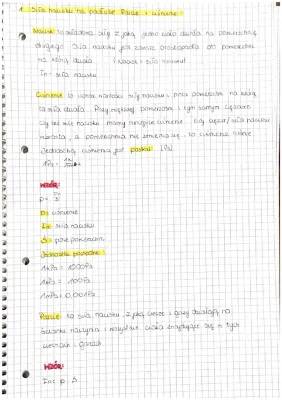 1. Siła nacisku na podłoże. Parcie i ciśnienie.
Nacisk to siła, z jaką jedno ciało działa na powierzchnię
drugiego. Siła nacisku jest zawsze prostopadła do powierzchni
na którą działa. nacisk = siła nacisku
Fn - siła nacisku
Ciśnienie to iloraz wartości siły nacisku i pola powierzchni na którą
ta siła działa. Przy większej powierzchni i tym samym ciężarze
czy też sile nacisku mamy mniejsze ciśnienie. Gdy ciężar / siła nacisku
wzrasta, a powierzchnia nie zmienia się, to ciśnienie rośnie.
Jednostką ciśnienia jest paskal [Pa]
1Pa =
WZÓR:
p =
p - ciśnienie
Fn - siła nacisku
S - pole powierzchni
Jednostki pochodne
1kPa = 1000Pa
1hPa = 100Pa
1mPa = 0,001Pa
Parcie to siła nacisku, z jaką ciecz i gazy działają na
ścianki naczynia i wszystkie ciała znajdujące się w tych
cieczach i gazach.
WZÓR:
Fn = p · S